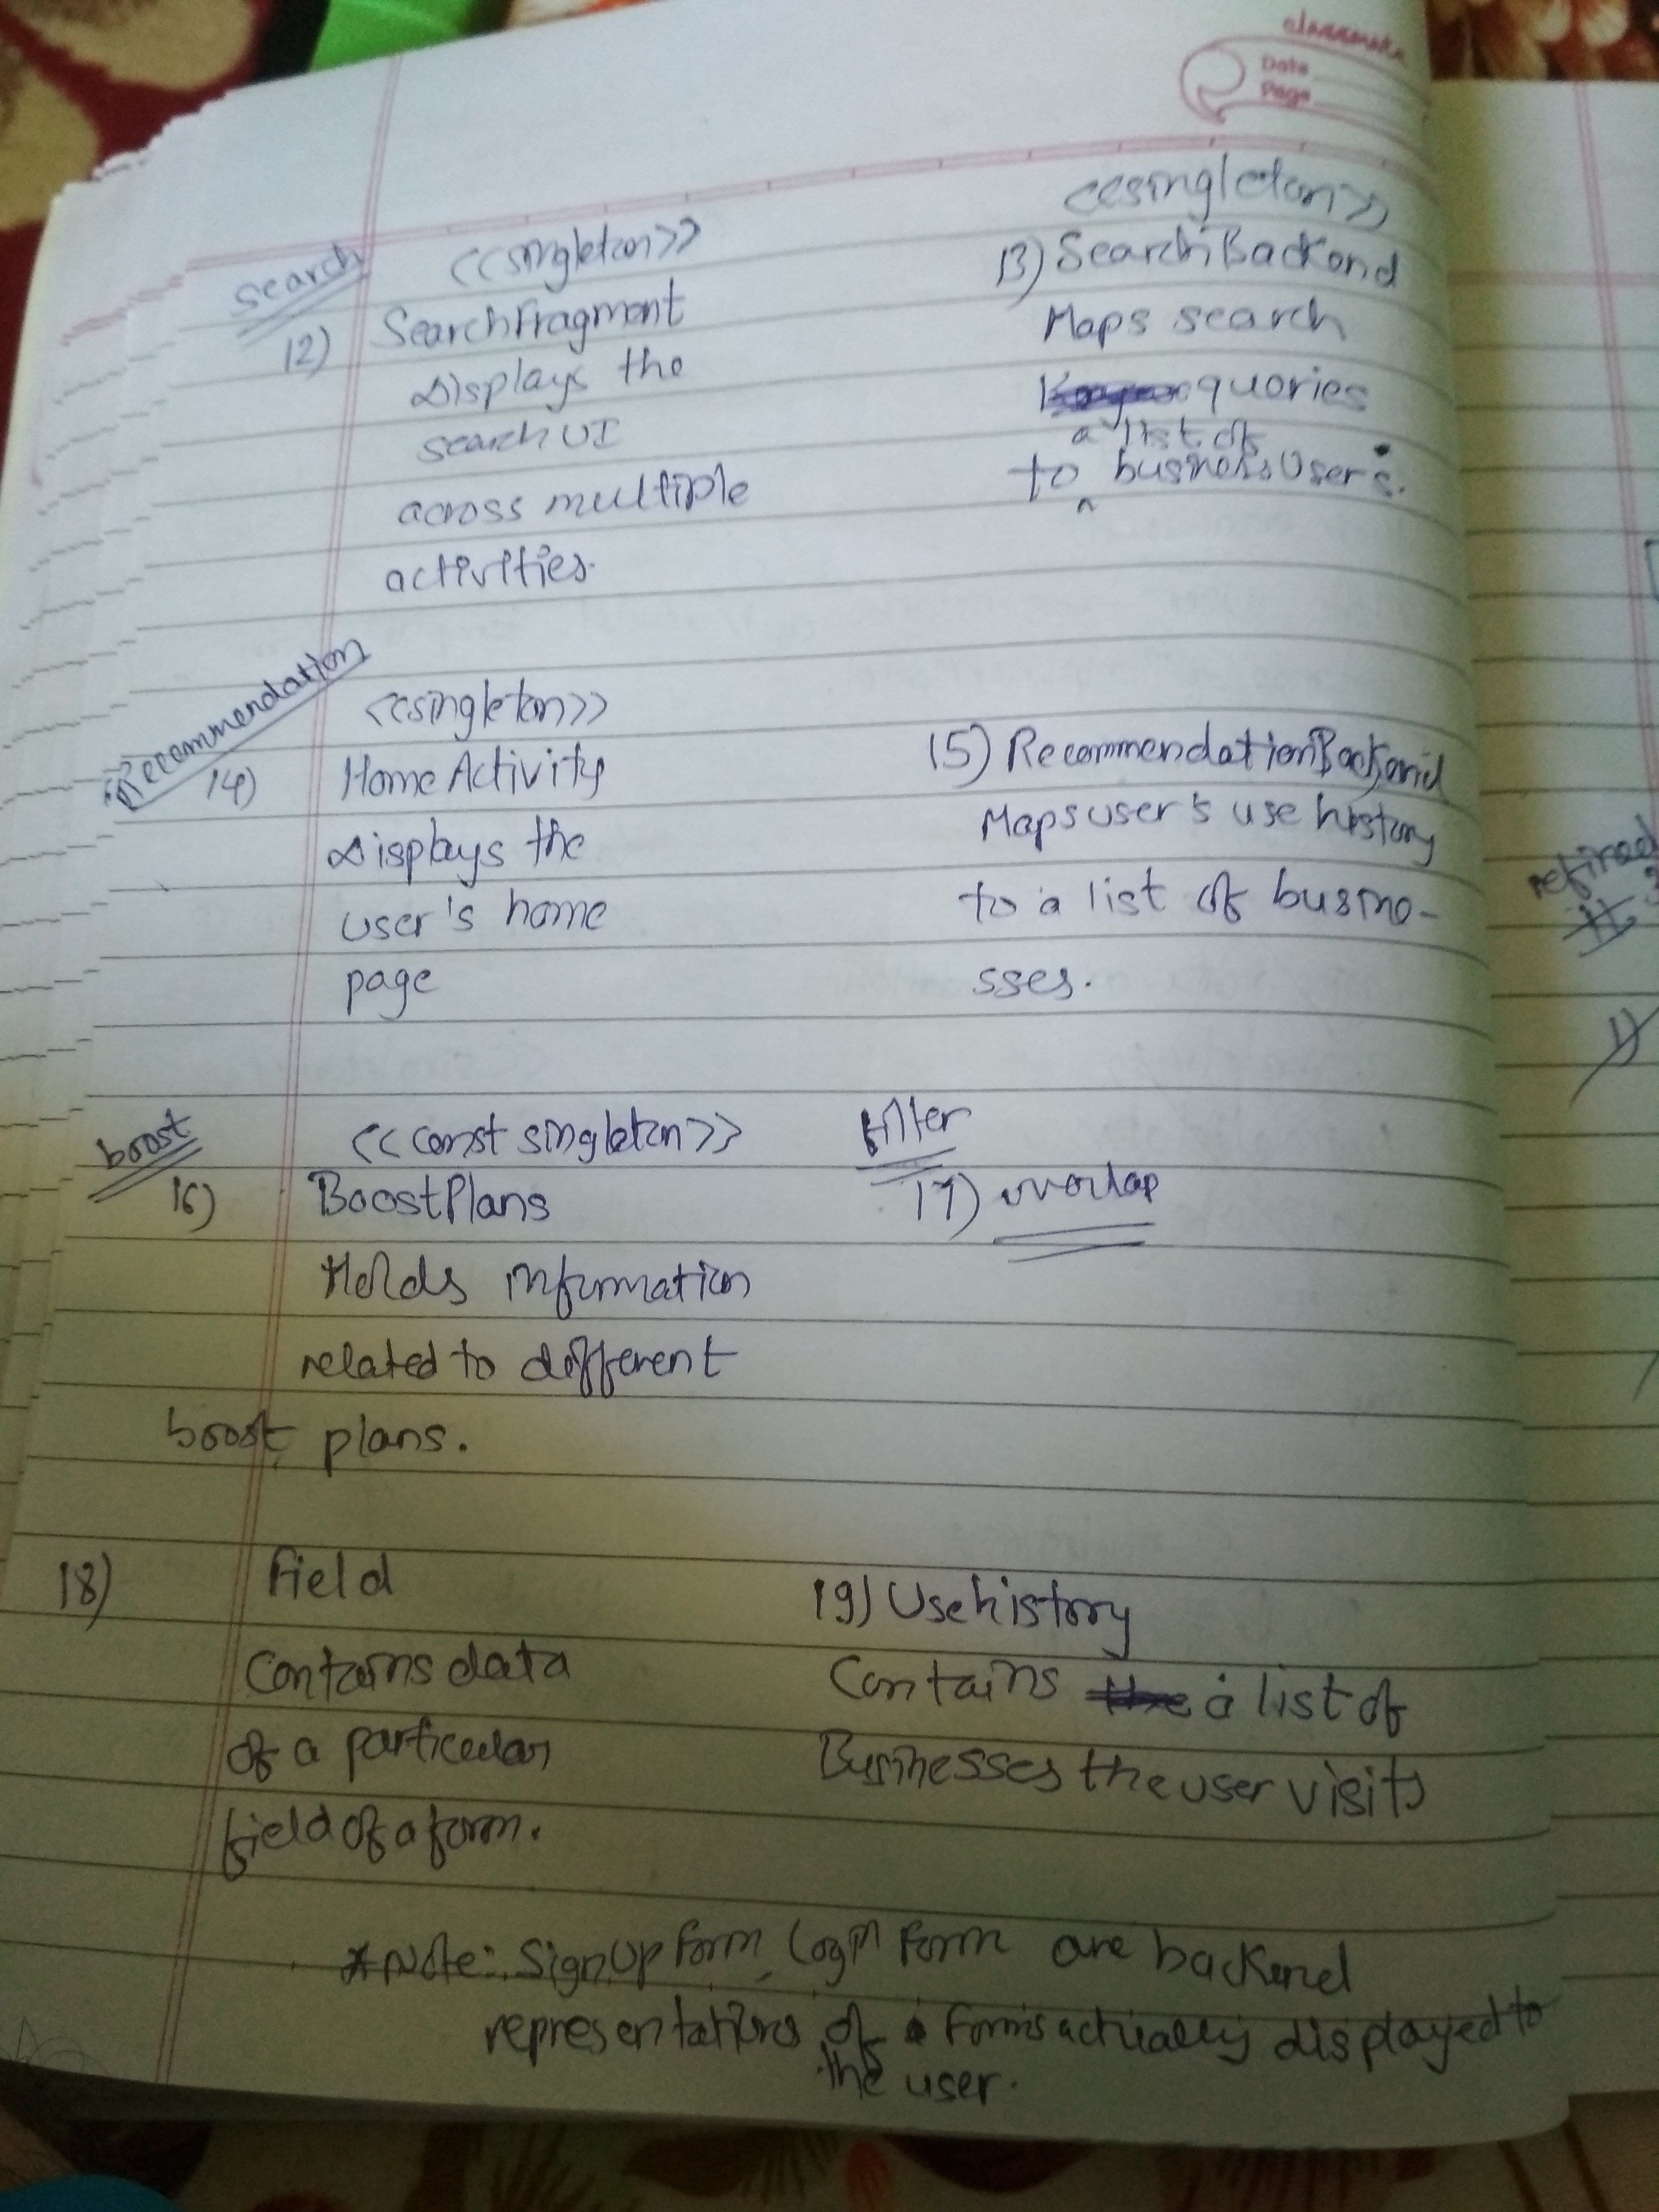 classmate
Date
Page
search
<<singleton>>
12) SearchFragment
Displays the
search UI
across multiple
activities.
<<singleton>>
13) SearchBackend
Maps search
queries
a list of
to ^ businessUsers.
Recommendation
<<singleton>>
14) HomeActivity
Displays the
user's home
page
15) RecommendationBackend
Maps user's use history
to a list of busine-
sses.
boost
<<const singleton>>
16) BoostPlans
Holds information
related to different
boost plans.
Filter
17) overlap
18) Field
Contains data
of a particular
field of a form.
19) Usehistory
Contains a list of
Businesses the user visits
*Note: SignUp Form, Login Form are backend
representations of Forms actually displayed to
the user.
refined
1)